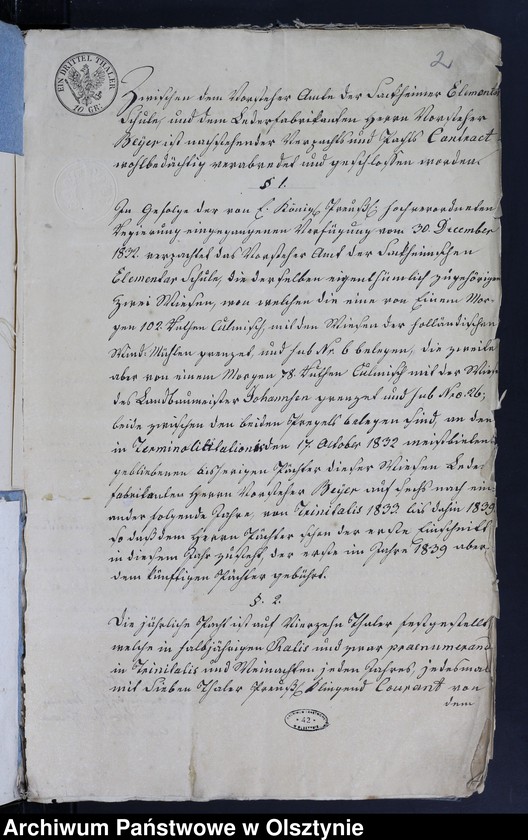 2
EIN DRITTEL THALER
10 GR:
Zwischen dem Vorsteher Amte der Sackheimer Elementar
Schule, und dem Lederfabrikanten Herrn Vorsteher
Beyer ist nachstehender Verpachts und Pachts Contract
wohlbedächtig verabredet und geschlossen worden.
§ 1.
In Gefolge der von E. Königl. Preuß. hochverordneten
Regierung eingegangenen Verfügung vom 30. December
1832. verpachtet das Vorsteher Amt der Sackheimschen
Elementar Schule, die derselben eigenthümlich zugehörigen
zwei Wiesen, von welchen die eine von Einem Mor-
gen 102 Ruthen Culmisch, mit den Wiesen der holländischen
Wind-Mühlen grenzet, und sub Nr. 6 belegen, die zweite
aber von einem Morgen 78. Ruthen Culmisch mit der Wiese
des Landbaumeister Johannsen grenzet und sub Nro. 26;
beide zwischen den beiden Pregels belegen sind, an den
in Termino Licitationis den 17 October 1832 meistbietend
gebliebenen bisherigen Pächter dieser Wiesen Leder-
fabrikanten Herrn Vorsteher Beyer auf sechs nach ein-
ander folgende Jahre, von Trinitatis 1833 bis dahin 1839
so daß dem Herrn Pächter schon der erste Einschnitt
in diesem Jahr zusteht, der erste im Jahre 1839 aber
dem künftigen Pächter gebührt.
§. 2.
Die jährliche Pacht ist auf Vierzehn Thaler festgestellt
welche in halbjährigen Ratis und zwar praenumerando
in Trinitatis und Weinachten jeden Jahres, jedesmal
mit Sieben Thaler Preuß. klingend Courant von
dem
42
Archiwum Państwowe w Olsztynie